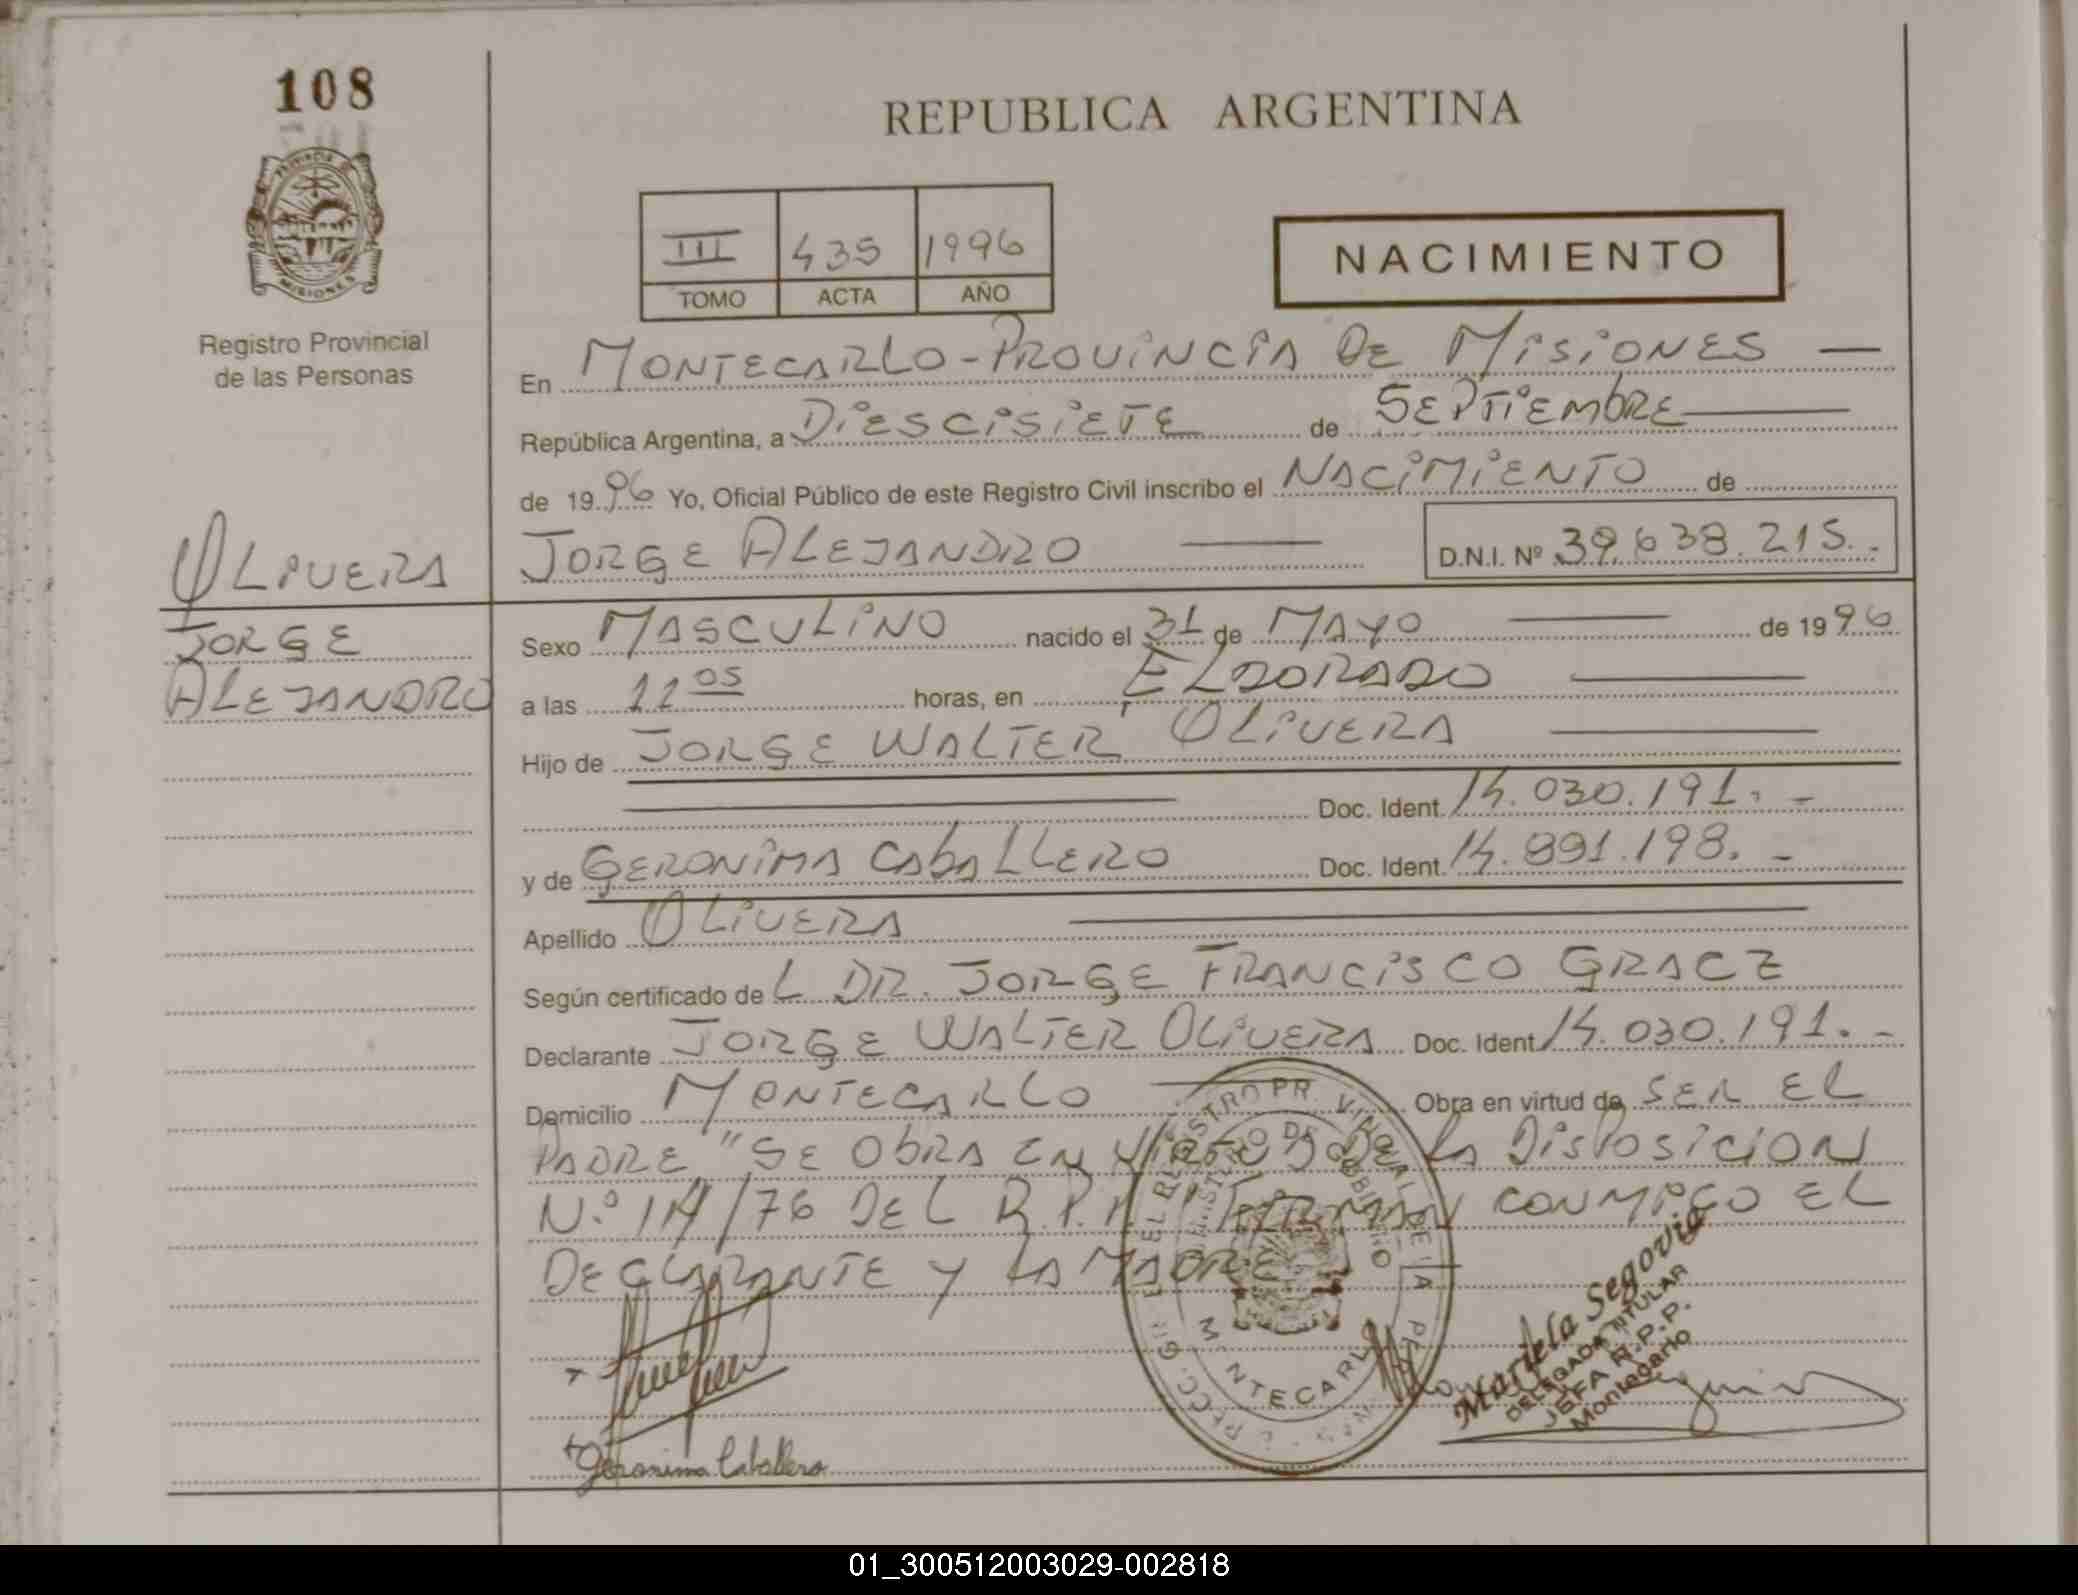 108
REPUBLICA ARGENTINA
PROVINCIA DE
MISIONES
Registro Provincial
de las Personas
III 435 1996
TOMO ACTA AÑO
NACIMIENTO
En MONTECARLO - PROVINCIA DE MISIONES —
República Argentina, a DIESCISIETE de SEPTIEMBRE
de 1996 Yo, Oficial Público de este Registro Civil inscribo el NACIMIENTO de
JORGE ALEJANDRO — D.N.I. Nº 39.638.215.-
OLIVERA
JORGE
ALEJANDRO
Sexo MASCULINO nacido el 31 de MAYO — de 1996
a las 11 05 horas, en ELDORADO —
Hijo de JORGE WALTER OLIVERA —
— Doc. Ident. 14.030.191.-
y de GERONIMA CABALLERO Doc. Ident. 14.891.198.-
Apellido OLIVERA —
Según certificado de L DR. JORGE FRANCISCO GRACZ
Declarante JORGE WALTER OLIVERA Doc. Ident 14.030.191.-
Domicilio MONTECARLO — Obra en virtud de SER EL
PADRE "SE OBRA EN VIRTUD DE LA DISPOSICION
N.º /76 DEL R.P.P. FIRMAN CONMIGO EL
DECLARANTE Y LA MADRE
MONTECARLO
Mariela Segovia
DELEGADA TITULAR
JEFA R.P.P.
Montecarlo
Geronima Caballero
01_300512003029-002818